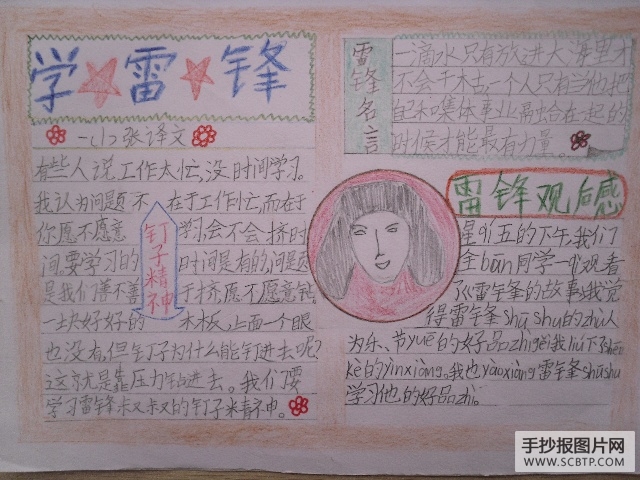 学雷锋
一(1)张译文
有些人说工作太忙,没时间学习。
我认为问题不在于工作忙,而在于
你愿不愿意学习,会不会挤时
间。要学习的时间是有的,问题
是我们善不善于挤,愿不愿意钻
一块好好的木板,上面一个眼
也没有,但钉子为什么能钉进去呢?
这就是靠压力钻进去。我们要
学习雷锋叔叔的钉子精神。
钉子精神
雷锋名言
一滴水只有放进大海里才
不会干枯,一个人只有当他把
自己和集体事业融合在起的
时候才能最有力量。
雷锋观后感
星qī五的下午,我们
全bān同学一qǐ观看
了《雷锋的故事》我觉
得雷锋shū shu的zhù人
为乐、节yuē的好品zhì gěi我liú下了shēn
kè的yìnxiàng,我也yào xiàng雷锋shūshu
学习他的好品zhì。
手抄报图片网
WWW.SCBTP.COM